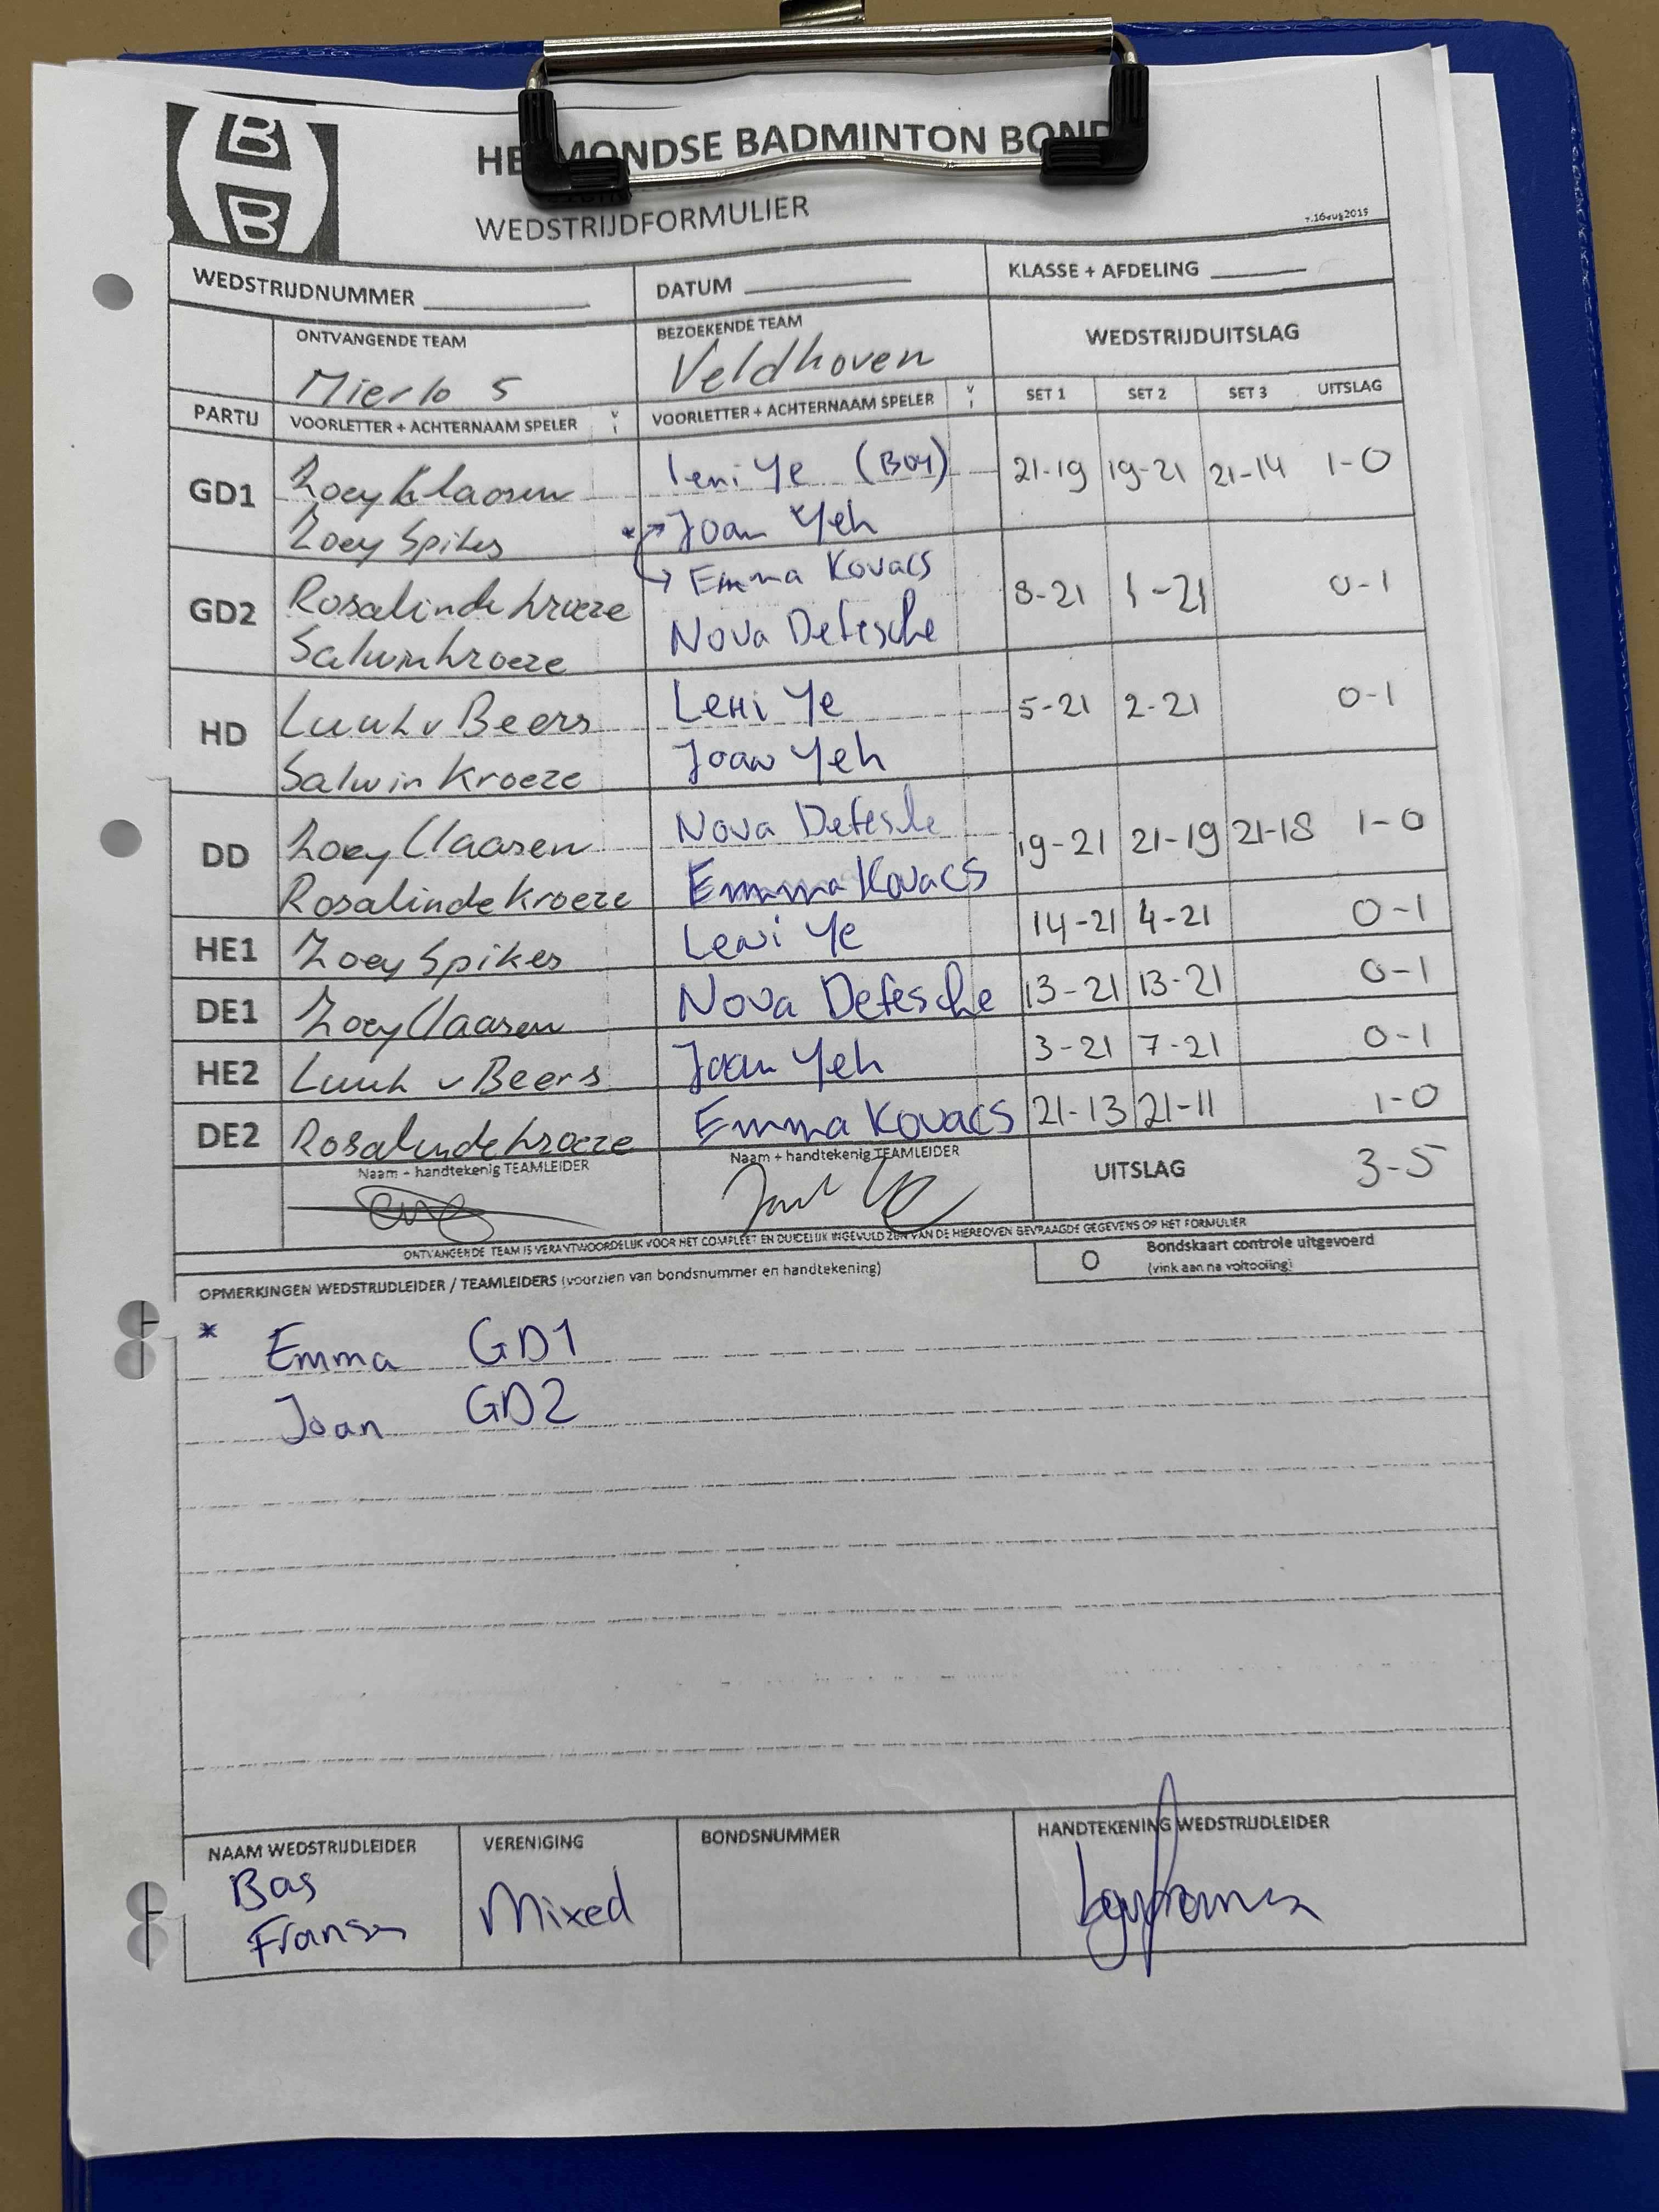 HELMONDSE BADMINTON BOND
WEDSTRIJDFORMULIER
WEDSTRIJDNUMMER
DATUM
KLASSE + AFDELING
ONTVANGENDE TEAM
BEZOEKENDE TEAM
WEDSTRIJDUITSLAG
Mierlo 5
Veldhoven
PARTIJ VOORLETTER + ACHTERNAAM SPELER V I VOORLETTER + ACHTERNAAM SPELER V I SET 1 SET 2 SET 3 UITSLAG
GD1 Zoey Klaasen Leni Ye (Boy) 21-19 19-21 21-14 1-0
Zoey Spikes * Joan Yeh
GD2 Rosalinde Kroeze Emma Kovacs 8-21 1-21 0-1
Salwin Kroeze Nova Defesche
HD Luuk v Beers Leni Ye 5-21 2-21 0-1
Salwin Kroeze Joan Yeh
DD Zoey Claasen Nova Defesche 19-21 21-19 21-18 1-0
Rosalinde Kroeze Emma Kovacs
HE1 Zoey Spikes Leni Ye 14-21 4-21 0-1
DE1 Zoey Claasen Nova Defesche 13-21 13-21 0-1
HE2 Luuk v Beers Joan Yeh 3-21 7-21 0-1
DE2 Rosalinde Kroeze Emma Kovacs 21-13 21-11 1-0
Naam + handtekenig TEAMLEIDER Naam + handtekenig TEAMLEIDER UITSLAG 3-5
ONTVANGENDE TEAM IS VERANTWOORDELIJK VOOR HET COMPLEET EN DUIDELIJK INGEVULD ZIJN VAN DE HIERBOVEN GEVRAAGDE GEGEVENS OP HET FORMULIER
OPMERKINGEN WEDSTRIJDLEIDER / TEAMLEIDERS (voorzien van bondsnummer en handtekening)
O Bondskaart controle uitgevoerd
(vink aan na voltooiing)
* Emma GD1
Joan GD2
NAAM WEDSTRIJDLEIDER VERENIGING BONDSNUMMER HANDTEKENING WEDSTRIJDLEIDER
Bas
Fransen Mixed